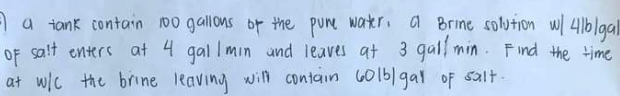 ) a tank contain 100 gallons of the pure water. a Brine solution w/ 4lb/gal
of salt enters at 4 gal/min and leaves at 3 gal/min. Find the time
at w/c the brine leaving will contain 60lb/gal of salt.